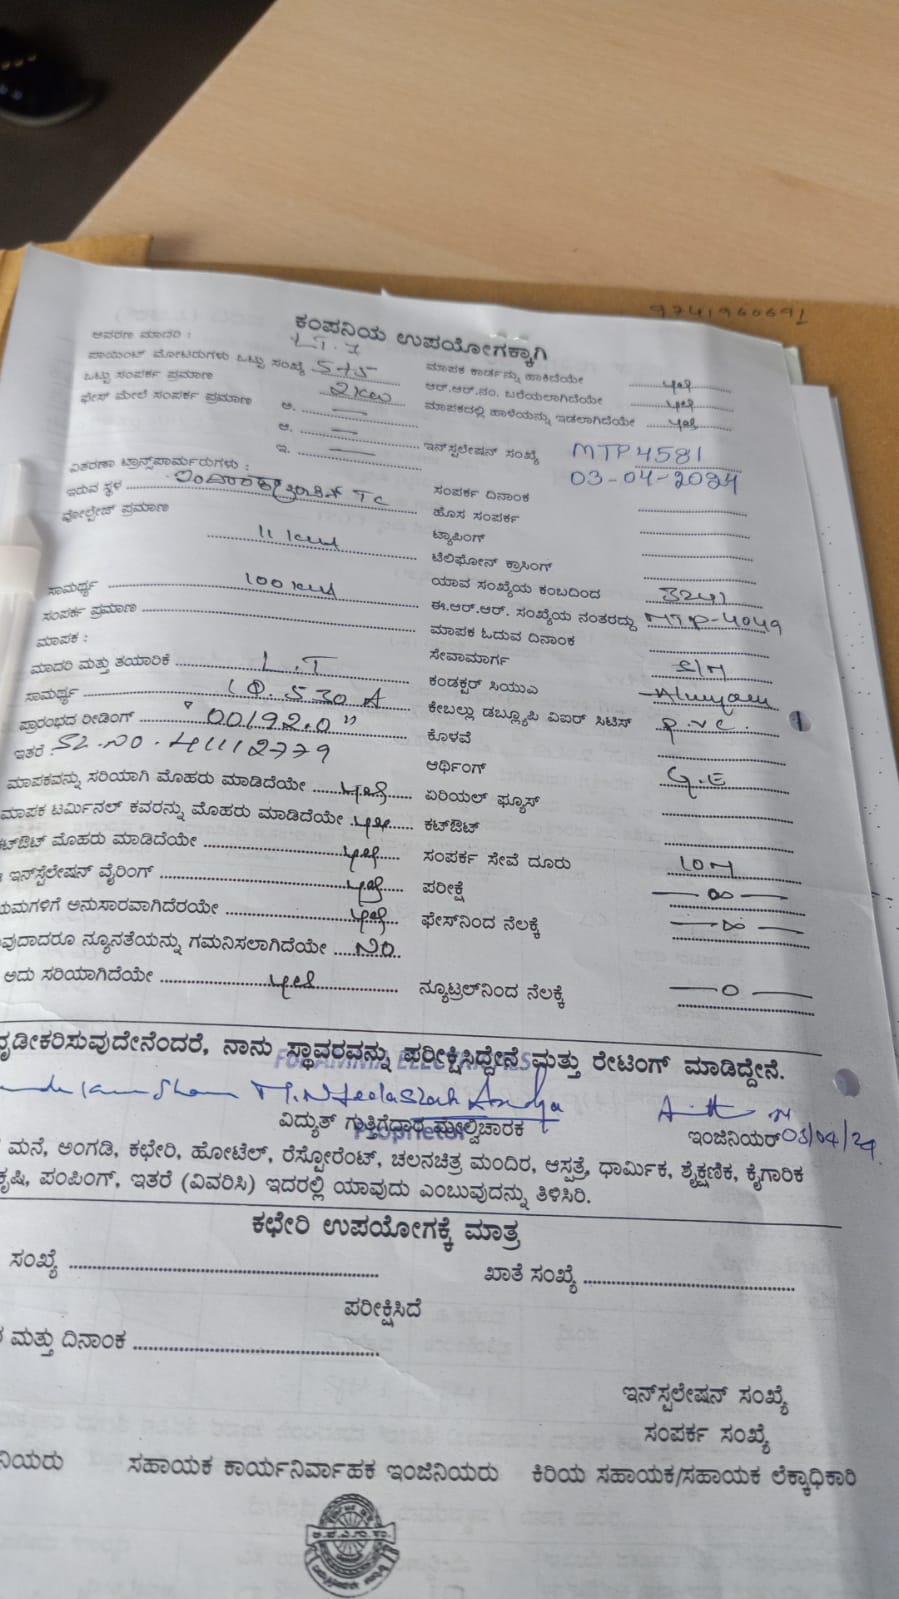 9741960691
ಕಂಪನಿಯ ಉಪಯೋಗಕ್ಕಾಗಿ
ಆವರಣ ಮಾದರಿ : L.T.
ಪಾಯಿಂಟ್ ಮೋಟರುಗಳು ಒಟ್ಟು ಸಂಖ್ಯೆ 5+5 ಮಾಪಕ ಕಾರ್ಡನ್ನು ಹಾಕಿದೆಯೇ yes
ಒಟ್ಟು ಸಂಪರ್ಕ ಪ್ರಮಾಣ 2kw ಆರ್.ಆರ್.ನಂ. ಬರೆಯಲಾಗಿದೆಯೇ yes
ಫೇಸ್ ಮೇಲೆ ಸಂಪರ್ಕ ಪ್ರಮಾಣ ಅ. — ಮಾಪಕದಲ್ಲಿ ಹಾಳೆಯನ್ನು ಇಡಲಾಗಿದೆಯೇ yes
ಆ. — ಇನ್‌ಸ್ಟಲೇಷನ್ ಸಂಖ್ಯೆ MTP4581
ಇ. — 03-04-2024
ವಿತರಣಾ ಟ್ರಾನ್ಸ್‌ಫಾರ್ಮರುಗಳು : ಸಂಪರ್ಕ ದಿನಾಂಕ
ಇರುವ ಸ್ಥಳ TC ಹೊಸ ಸಂಪರ್ಕ
ವೋಲ್ಟೇಜ್ ಪ್ರಮಾಣ 11 ಟ್ಯಾಪಿಂಗ್
ಟೆಲಿಫೋನ್ ಕ್ರಾಸಿಂಗ್
ಸಾಮರ್ಥ್ಯ 100 ಯಾವ ಸಂಖ್ಯೆಯ ಕಂಬದಿಂದ 3241
ಸಂಪರ್ಕ ಪ್ರಮಾಣ ಈ.ಆರ್.ಆರ್. ಸಂಖ್ಯೆಯ ನಂತರದ್ದು MTP-4049
ಮಾಪಕ : ಮಾಪಕ ಓದುವ ದಿನಾಂಕ
ಮಾದರಿ ಮತ್ತು ತಯಾರಿಕೆ L.T ಸೇವಾಮಾರ್ಗ S/M
ಸಾಮರ್ಥ್ಯ 1Φ.5 30 A ಕಂಡಕ್ಟರ್ ಸಿಯುಎ
ಪ್ರಾರಂಭದ ರೀಡಿಂಗ್ "00192.0" ಕೇಬಲ್ಲು ಡಬ್ಲ್ಯೂಪಿ ವಿಐಆರ್ ಸಿಟಿಸ್ p.v.c.
ಇತರೆ SL.NO.41112779 ಕೊಳವೆ
ಆರ್ಥಿಂಗ್ G.E
ಮಾಪಕವನ್ನು ಸರಿಯಾಗಿ ಮೊಹರು ಮಾಡಿದೆಯೇ yes ಏರಿಯಲ್ ಫ್ಯೂಸ್
ಮಾಪಕ ಟರ್ಮಿನಲ್ ಕವರನ್ನು ಮೊಹರು ಮಾಡಿದೆಯೇ yes ಕಟ್‌ಔಟ್
ಕಟ್‌ಔಟ್ ಮೊಹರು ಮಾಡಿದೆಯೇ yes ಸಂಪರ್ಕ ಸೇವೆ ದೂರು 10M
ಇನ್‌ಸ್ಟೆಲೇಷನ್ ವೈರಿಂಗ್ yes ಪರೀಕ್ಷೆ —∞—
ಯಮಗಳಿಗೆ ಅನುಸಾರವಾಗಿದೆರಯೇ yes ಫೇಸ್‌ನಿಂದ ನೆಲಕ್ಕೆ —∞—
ವುದಾದರೂ ನ್ಯೂನತೆಯನ್ನು ಗಮನಿಸಲಾಗಿದೆಯೇ NO
ಅದು ಸರಿಯಾಗಿದೆಯೇ yes ನ್ಯೂಟ್ರಲ್‌ನಿಂದ ನೆಲಕ್ಕೆ —0—
ದೃಢೀಕರಿಸುವುದೇನೆಂದರೆ, ನಾನು ಸ್ಥಾವರವನ್ನು ಪರೀಕ್ಷಿಸಿದ್ದೇನೆ ಮತ್ತು ರೇಟಿಂಗ್ ಮಾಡಿದ್ದೇನೆ.
ವಿದ್ಯುತ್ ಗುತ್ತಿಗೆದಾರ ಮೇಲ್ವಿಚಾರಕ ಇಂಜಿನಿಯರ್ 03/04/24
Proprietor
ಮನೆ, ಅಂಗಡಿ, ಕಛೇರಿ, ಹೋಟೆಲ್, ರೆಸ್ಟೋರೆಂಟ್, ಚಲನಚಿತ್ರ ಮಂದಿರ, ಆಸ್ಪತ್ರೆ, ಧಾರ್ಮಿಕ, ಶೈಕ್ಷಣಿಕ, ಕೈಗಾರಿಕ
ಕೃಷಿ, ಪಂಪಿಂಗ್, ಇತರೆ (ವಿವರಿಸಿ) ಇದರಲ್ಲಿ ಯಾವುದು ಎಂಬುವುದನ್ನು ತಿಳಿಸಿರಿ.
ಕಛೇರಿ ಉಪಯೋಗಕ್ಕೆ ಮಾತ್ರ
ಸಂಖ್ಯೆ ಖಾತೆ ಸಂಖ್ಯೆ
ಪರೀಕ್ಷಿಸಿದೆ
ಮತ್ತು ದಿನಾಂಕ
ಇನ್‌ಸ್ಟಲೇಷನ್ ಸಂಖ್ಯೆ
ಸಂಪರ್ಕ ಸಂಖ್ಯೆ
ನಿಯರು ಸಹಾಯಕ ಕಾರ್ಯನಿರ್ವಾಹಕ ಇಂಜಿನಿಯರು ಕಿರಿಯ ಸಹಾಯಕ/ಸಹಾಯಕ ಲೆಕ್ಕಾಧಿಕಾರಿ